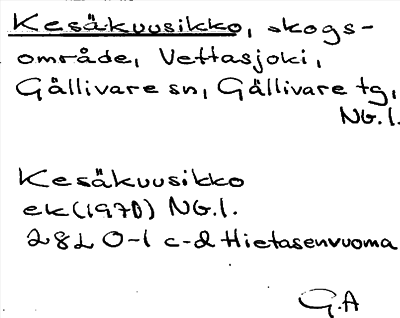 Kesäkuusikko, skogs-
område, Vettasjoki,
Gällivare sn, Gällivare tg,
NG.l.
Kesäkuusikko
ek (1970) NG.l.
28L 0-1 c-d Hietasenvuoma
G.A